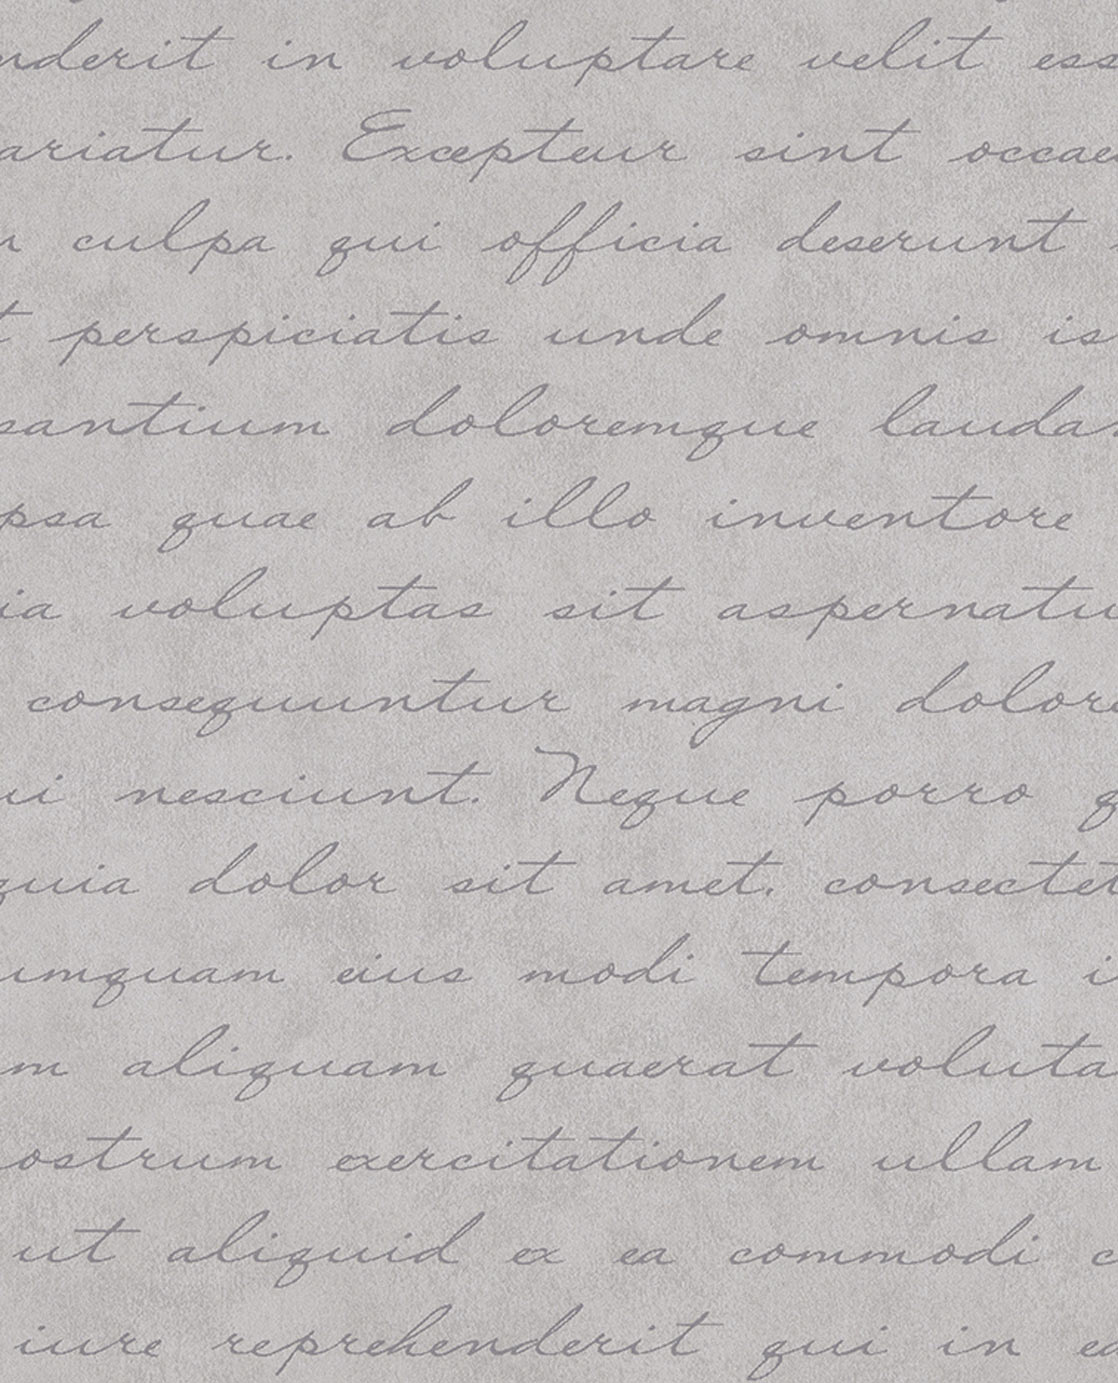 nderit in voluptare velit ess
ariatur. Excepteur sint occae
culpa qui officia deserunt
t perspiciatis unde omnis is
santium doloremque lauda
psa quae ab illo inventore
ia voluptas sit aspernatu
consequuntur magni dolore
ui nesciunt. Neque porro q
quia dolor sit amet, consectet
umquam eius modi tempora i
m aliquam quaerat voluta
ostrum exercitationem ullam
ut aliquid ex ea commodi c
iure reprehenderit qui in ea